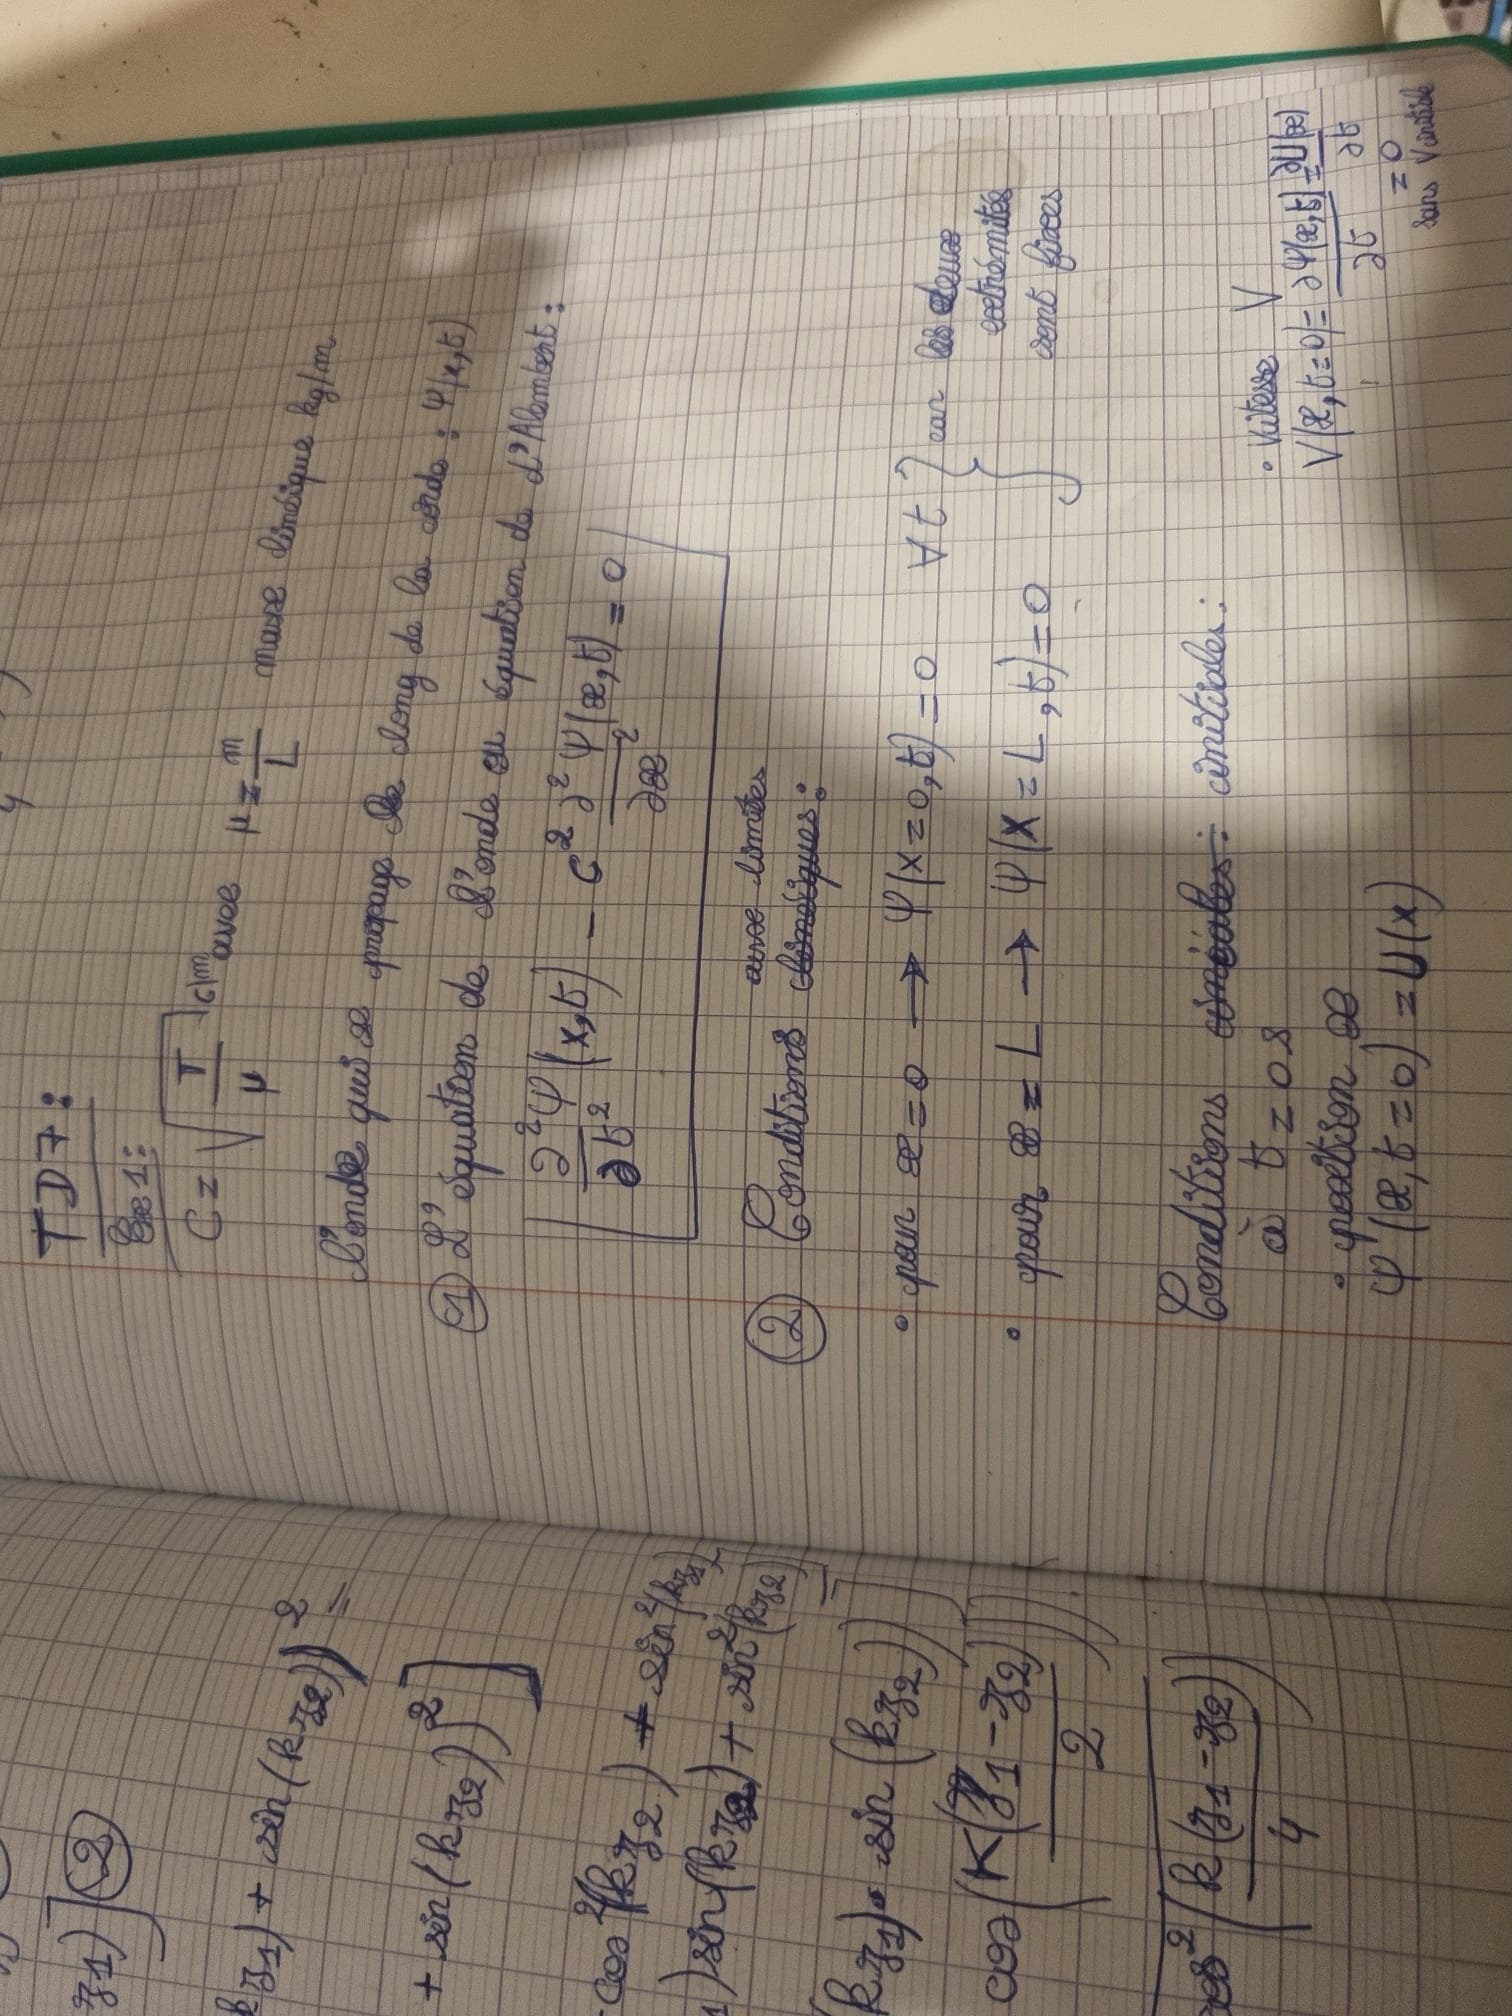 z1)] 2
kz1) + sin(kz2))² =
+ sin(kz2))²]
cos²(kz2) + sin²(kz1)
1)sin(kz2) + sin²(kz2)
(kz1) · sin(kz2))]
cos(K(z1-z2)/2))
cos²(k(z1-z2)/4)
TD7:
Ex1:
C = √(T/μ) avec μ = m/L masse linéique kg/m
l'onde qui se propage le long de la corde : Ψ(x,t)
① L'équation de l'onde ou équation de d'Alembert :
∂²Ψ/∂t² (x,t) - c² ∂²Ψ(x,t)/∂x² = 0
② Conditions aux limites :
• pour x = 0 → Ψ(x=0,t) = 0 ∀t } car les deux
extrémités
• pour x = L → Ψ(x=L,t) = 0
sont fixes
Conditions initiales :
à t = 0 s
• position x
Ψ(x,t=0) = U(x)
• vitesse V
V(x,t=0) = ∂Ψ(x,t)/∂t = ∂U(x)/∂t
= 0
sans V initiale